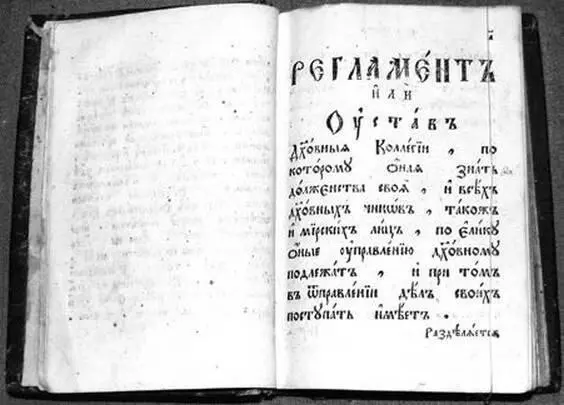 РЕГЛАМЕ́НТЪ
И҆ЛЍ
ОУ҆СТА́ВЪ
Дх҃о́вныѧ Колле́гїи , по
кото́рому ѻ҆́наѧ зна́ть
до́лженства своѧ̀ , и҆ всѣ́хъ
дх҃о́вныхъ чинѡ́въ , тако́жъ
и҆ мїрски́хъ ли́цъ , по є҆ли́кꙋ
ѻ҆́ные оу҆правле́нїю дх҃о́вному
подлежа́тъ , и҆ при то́мъ
въ ѿправле́нїи дѣ́лъ свои́хъ
поступа́ть и҆мѣ́етъ .
Раздѣлѧ́етсѧ